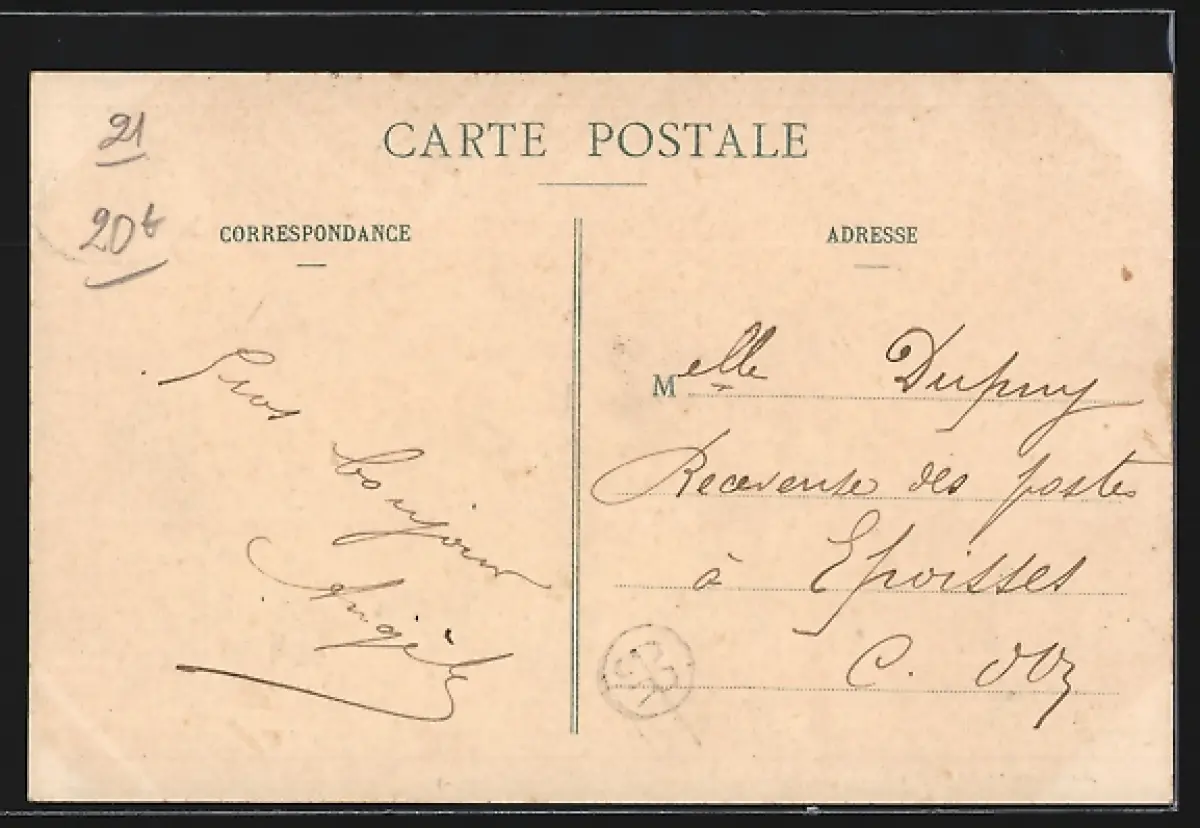 21
20t
CARTE POSTALE
CORRESPONDANCE
Gros
bonjour
Angèle
ADRESSE
Melle Dupuy
Receveuse des postes
à Epoisses
C. d'Or